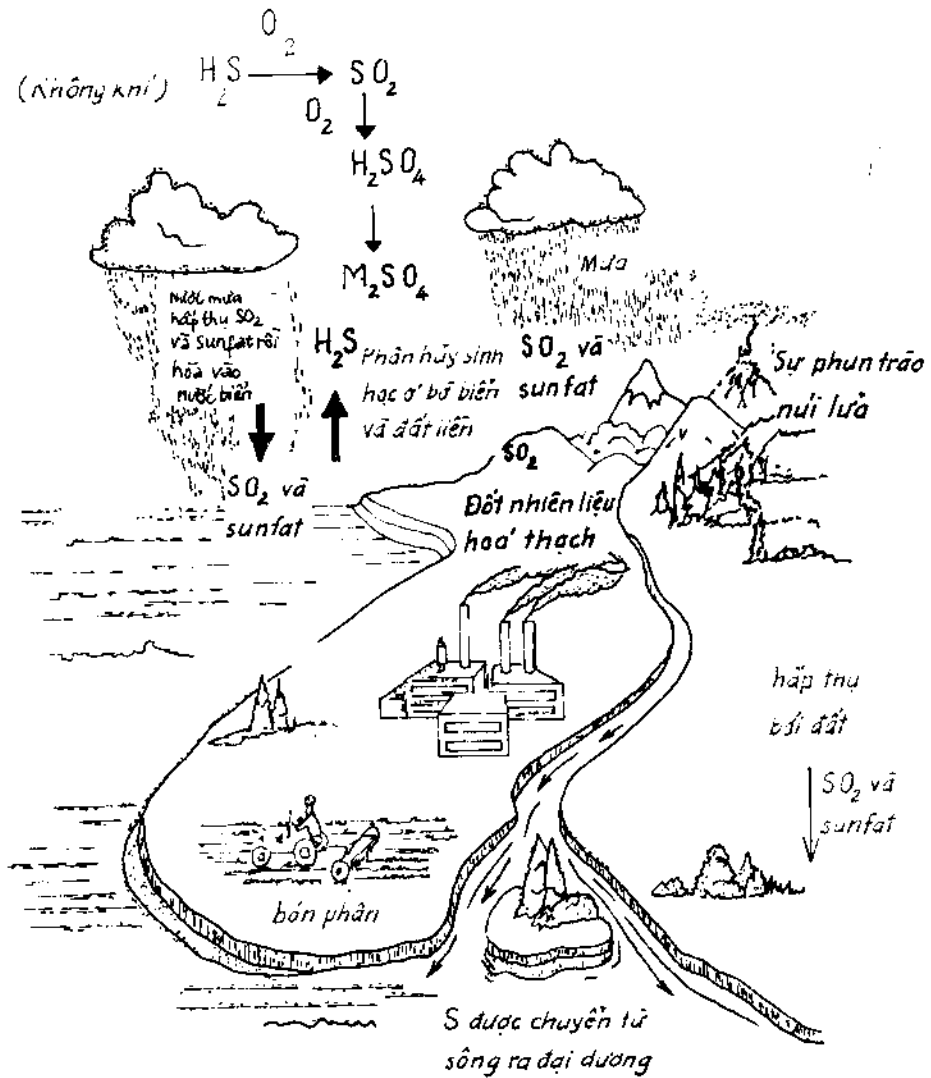 O₂
(Không khí) H₂S → SO₂
O₂
H₂SO₄
M₂SO₄
Mưa
Nước mưa
hấp thụ SO₂
và sunfat rồi
hòa vào
nước biển
H₂S
Phân hủy sinh
học ở bờ biển
và đất liền
SO₂ và
sunfat
Sự phun trào
núi lửa
SO₂
SO₂ và
sunfat
Đốt nhiên liệu
hoá thạch
hấp thụ
bởi đất
SO₂ và
sunfat
bón phân
S được chuyển từ
sông ra đại dương